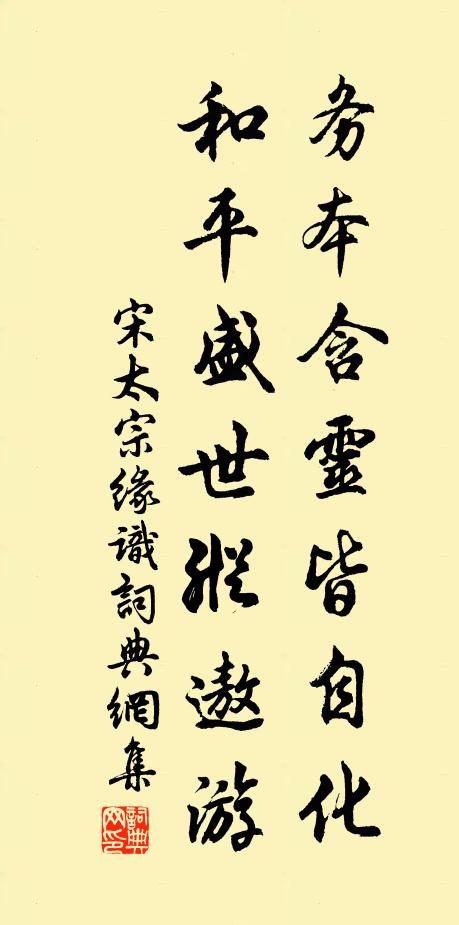 务本含靈皆自化
和平盛世縱遨游
宋太宗緣識詞典網集
詞典网印